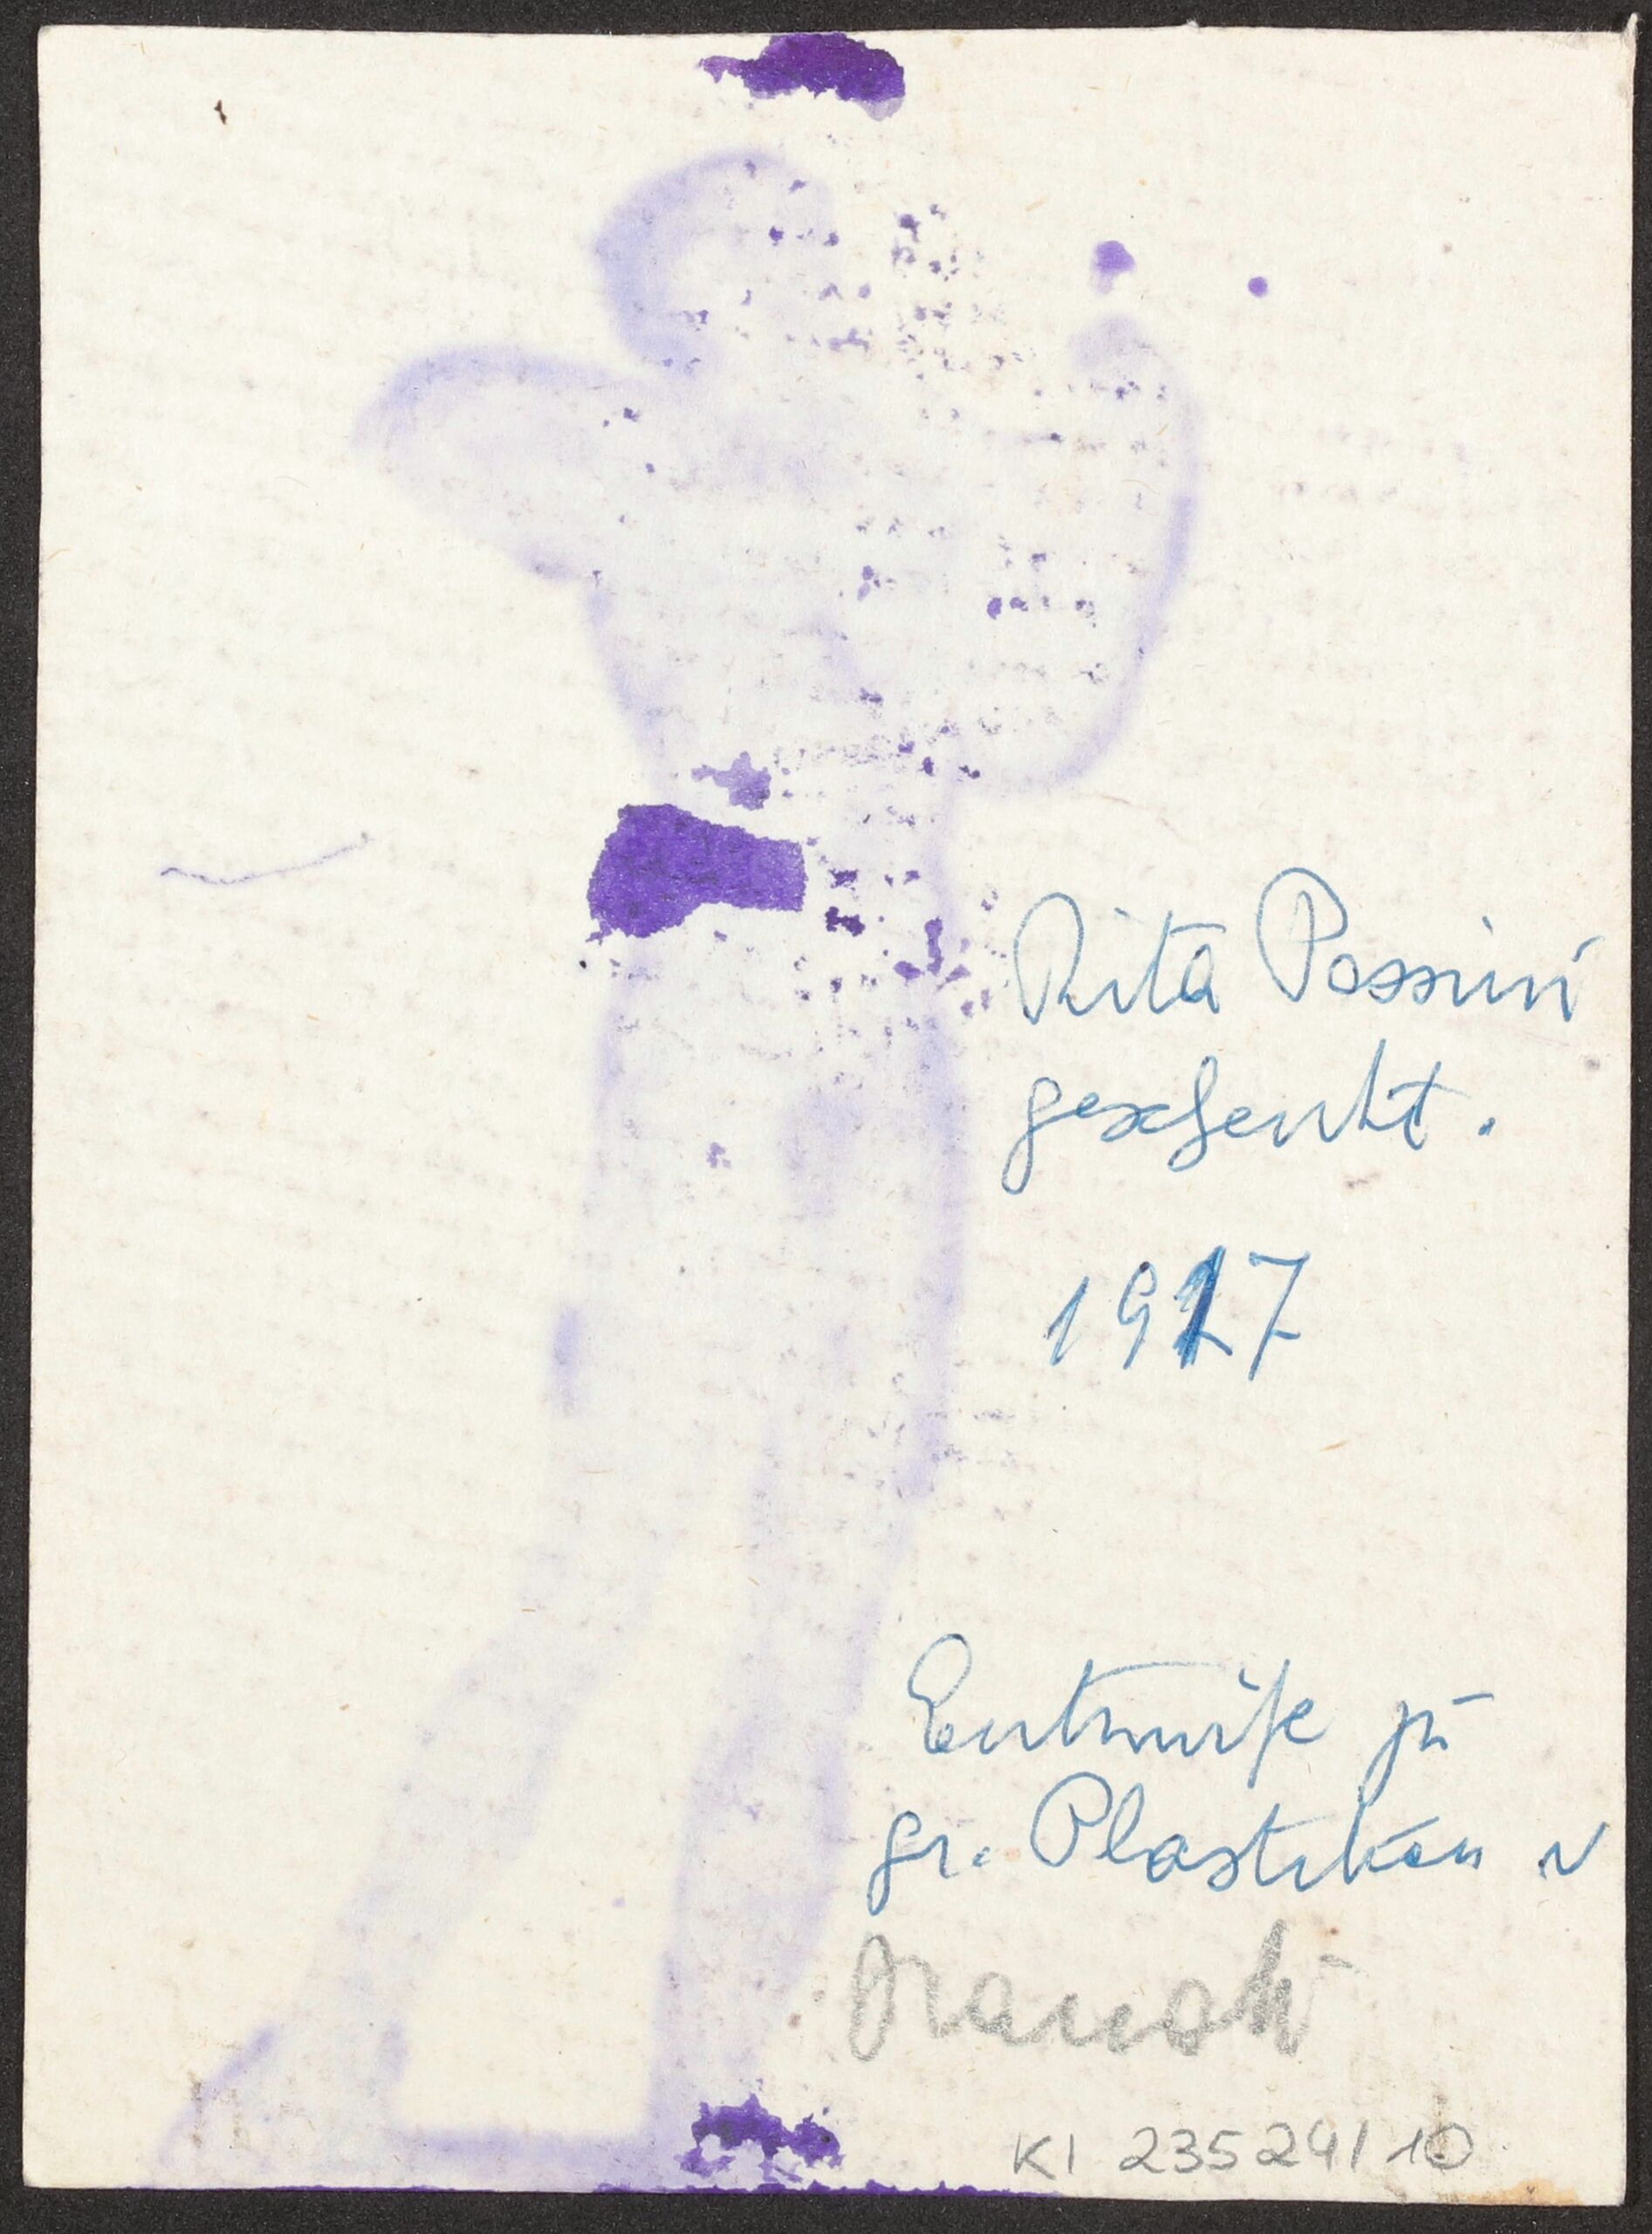 Rita Passini
geschenkt.
1917
Entwürfe zu
gr. Plastiken v
Hanak
KI 23529/10